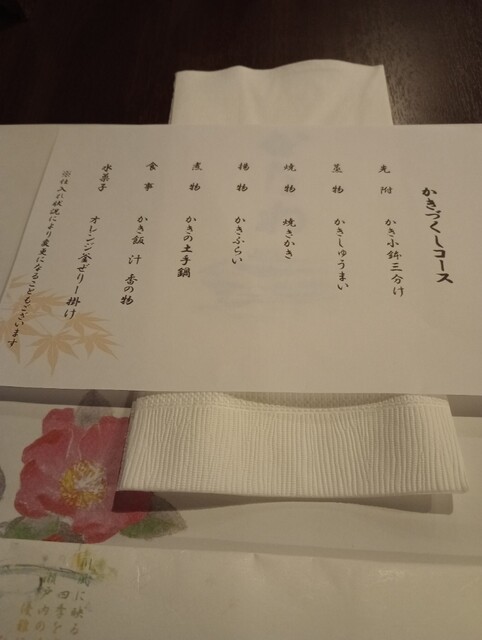 かきづくしコース
先附 かき小鉢三分け
蒸物 かきしゅうまい
焼物 焼きかき
揚物 かきふらい
煮物 かきの土手鍋
食事 かき飯 汁 香の物
水菓子 オレンジ釜ぜりー掛け
※仕入れ状況により変更になることもございます
に映る
四季を
内の